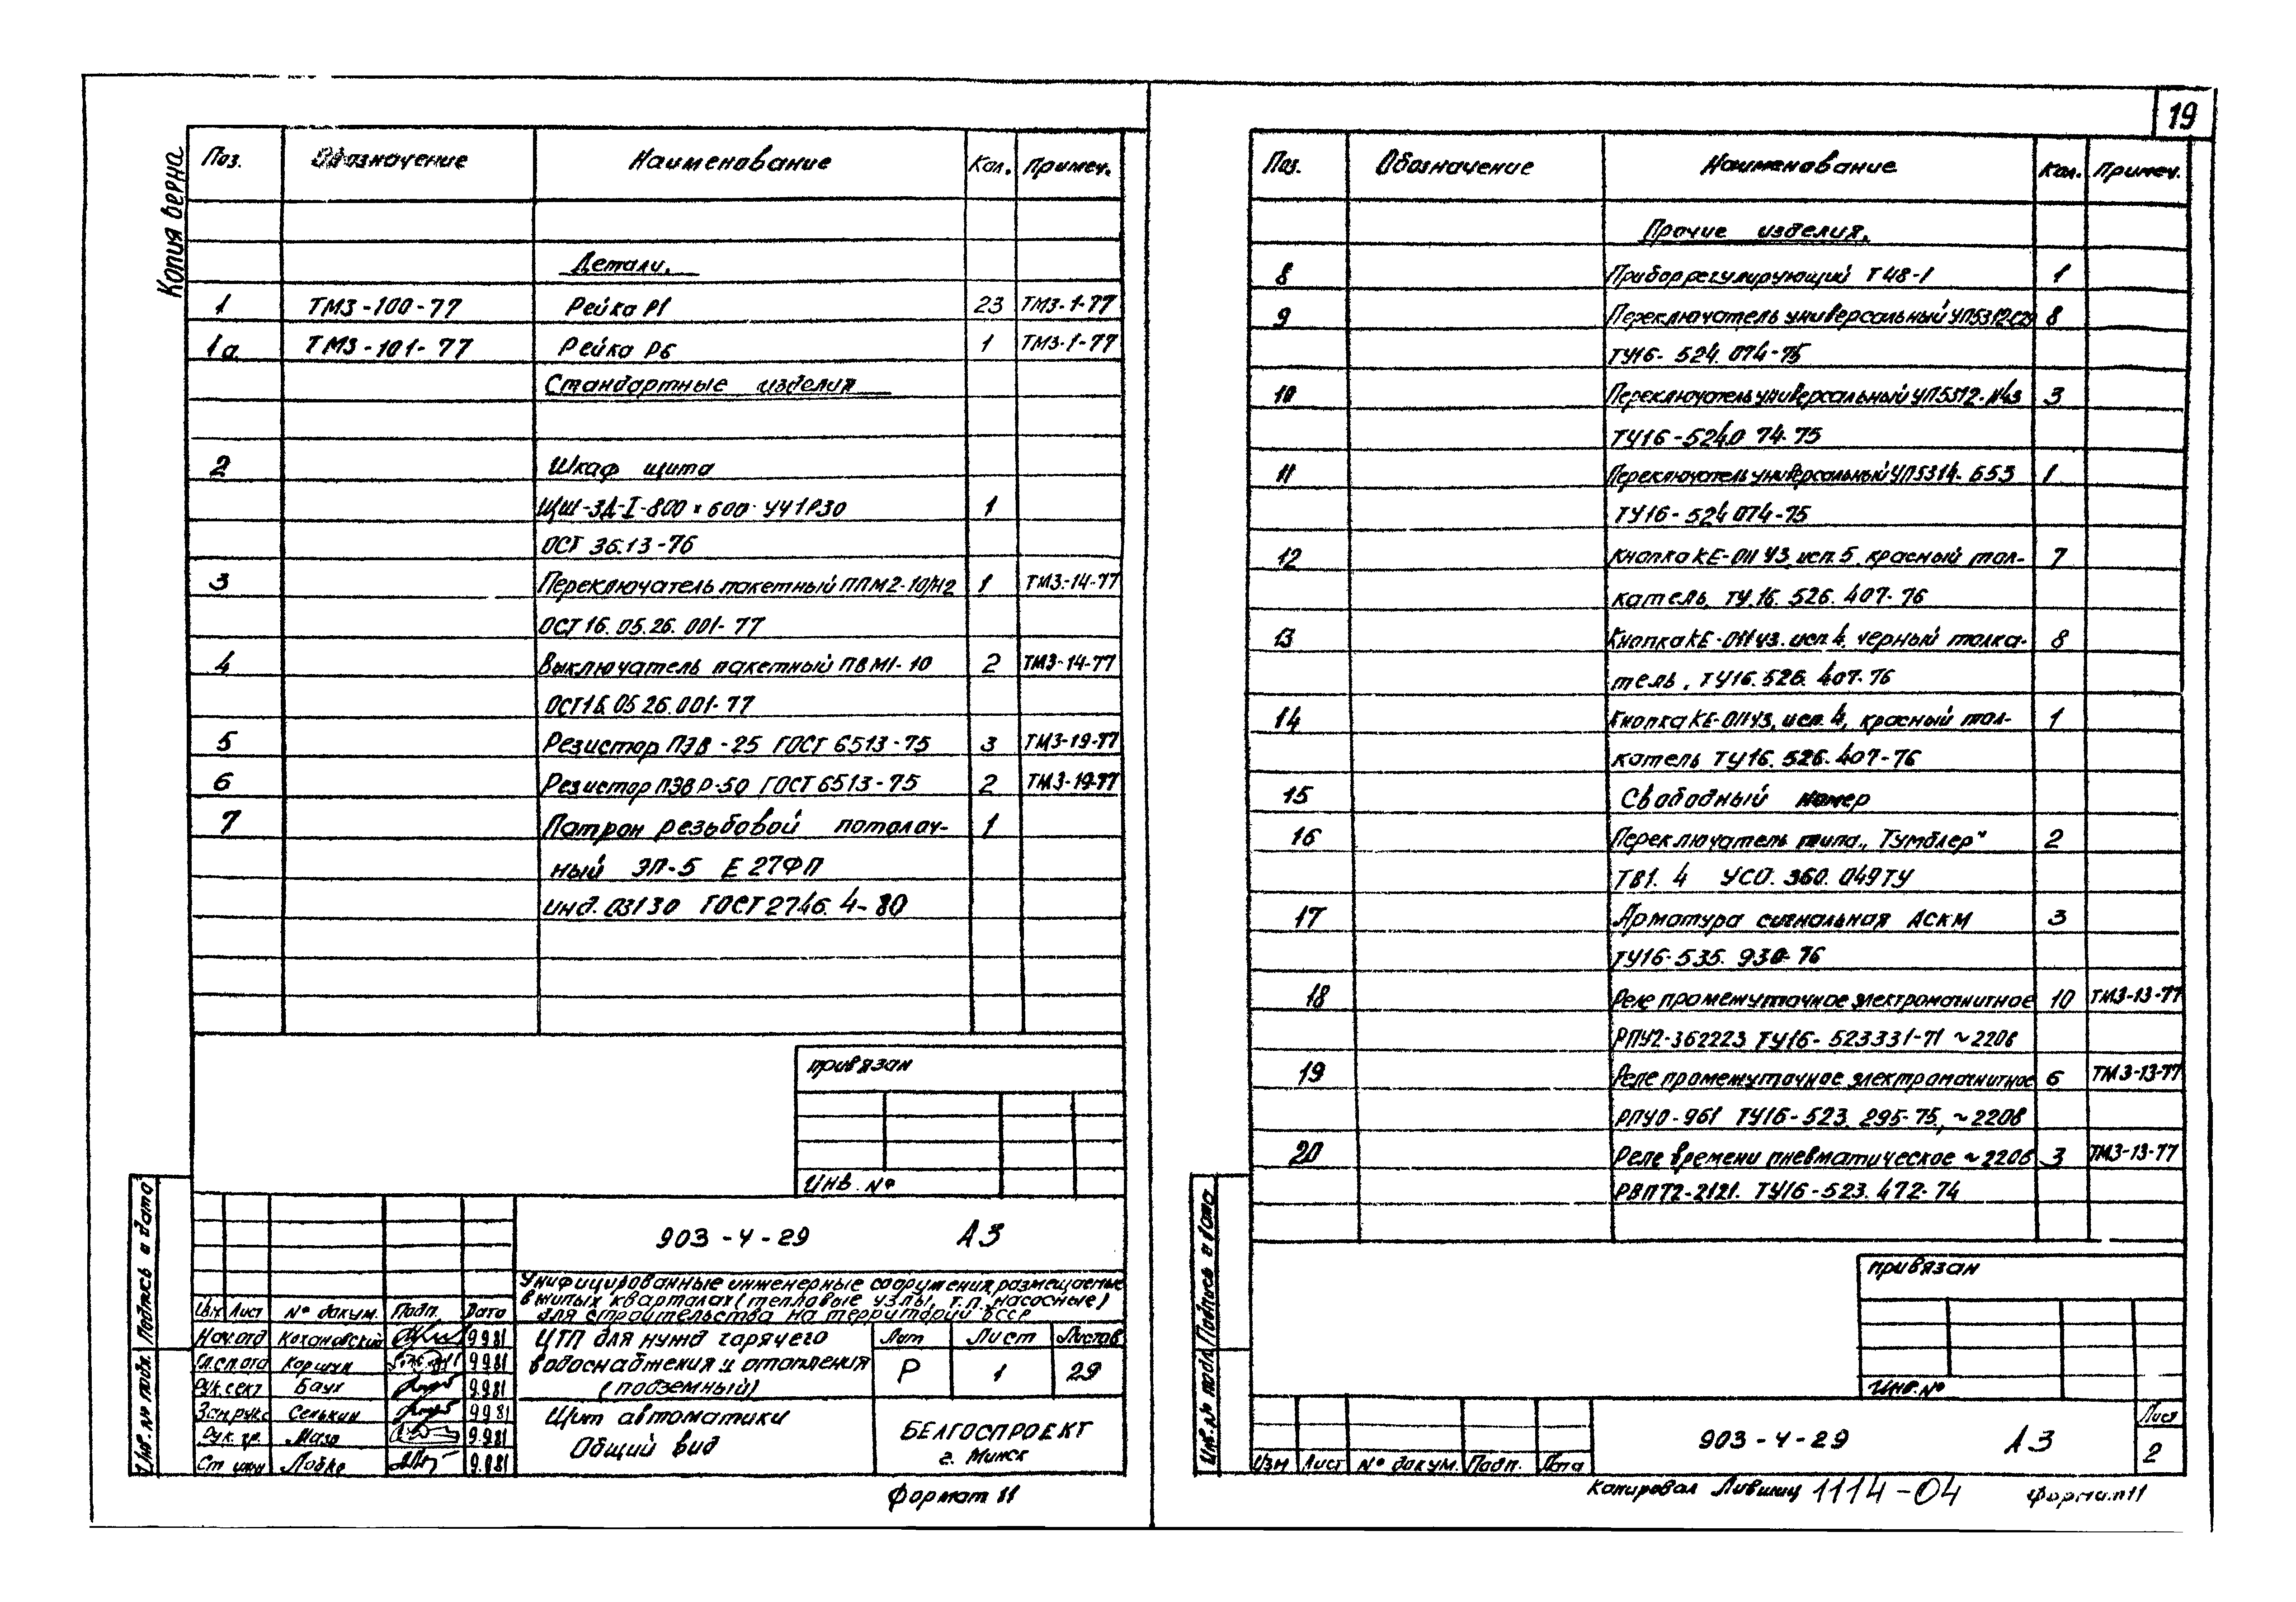 19
Копия верна
Поз. Обозначение Наименование Кол. Примеч.
Детали.
1 ТМ3-100-77 Рейка Р1 23 ТМ3-1-77
1а ТМ3-101-77 Рейка Р6 1 ТМ3-1-77
Стандартные изделия
2 Шкаф щита
ЩШ-ЗД-I-800×600-УЧ1Р30 1
ОСТ 36.13-76
3 Переключатель пакетный ППМ2-10/Н2 1 ТМ3-14-77
ОСТ 16.05.26.001-77
4 Выключатель пакетный ПВМ1-10 2 ТМ3-14-77
ОСТ16.05 26.001-77
5 Резистор ПЭВ-25 ГОСТ 6513-75 3 ТМ3-19-77
6 Резистор ПЭВР-50 ГОСТ 6513-75 2 ТМ3-19-77
7 Патрон резьбовой потолоч- 1
ный ЭП-5 Е27ФП
инд. 03130 ГОСТ 2746.4-80
привязан
Инв. №
903-4-29 А3
Унифицированные инженерные сооружения, размещаемые
в жилых кварталах (тепловые узлы, т.п. насосные)
для строительства на территории БССР
Изм Лист № докум. Подп. Дата
Нач.отд Кохановский 9.9.81
Гл.сп.отд Коршун 9.9.81
Рук.сект Баух 9.9.81
Сенькин 9.9.81
Рук. гр. Мазо 9.9.81
Ст инж 9.9.81
ЦТП для нужд горячего
водоснабжения и отопления
(подземный)
Лит Лист Листов
Р 1 29
Щит автоматики
Общий вид
БЕЛГОСПРОЕКТ
г. Минск
Подпись и дата
Инв. № подл.
Формат 11
Поз. Обозначение Наименование Кол. Примеч.
Прочие изделия.
8 Прибор регулирующий Т48-1 1
9 Переключатель универсальный УП5312-С29 8
ТУ16-524.074-75
10 Переключатель универсальный УП5312-N43 3
ТУ16-524.0 74-75
11 Переключатель универсальный УП5314-Б53 1
ТУ16-524 074-75
12 Кнопка КЕ-011 У3, исп. 5, красный тол- 7
катель, ТУ.16.526.407-76
13 Кнопка КЕ-011У3. исп. 4, черный толка- 8
тель, ТУ16.526.407-76
14 Кнопка КЕ-011У3, исп. 4, красный тол- 1
катель ТУ16.526.407-76
15 Свободный номер
16 Переключатель типа „Тумблер" 2
ТВ1.4 УСО.360.049ТУ
17 Арматура сигнальная АСКМ 3
ТУ16-535.930-76
18 Реле промежуточное электромагнитное 10 ТМ3-13-77
РПУ2-362223 ТУ16-523331-71 ~220в
19 Реле промежуточное электромагнитное 6 ТМ3-13-77
РПУ0-961 ТУ16-523.295-75, ~220в
20 Реле времени пневматическое ~220в 3 ТМ3-13-77
РВП72-2121. ТУ16-523.472-74
привязан
Инв. №
Подпись и дата
Инв. № подл
903-4-29 А3
Лист
2
Изм Лист № докум. Подп. Дата
Копировал Лившиц 1114-04 Формат 11